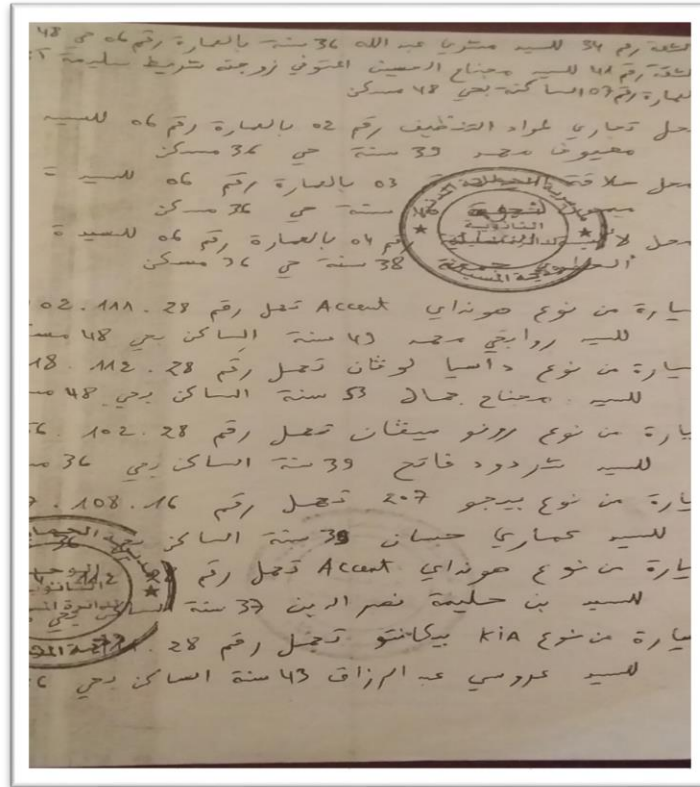 الشقة رقم 34 للسيد مشري عبد الله 36 سنة بالعمارة رقم 06 حي 48
الشقة رقم 41 للسيد مجناح الحسين المتوفي زوجته شريط سليمة
العمارة رقم 07 الساكنة بحي 48 مسكن
محل تجاري لمواد التنظيف رقم 02 بالعمارة رقم 06 للسيد
معيوف محمد 39 سنة حي 36 مسكن
محل حلاقة 03 بالعمارة رقم 06 للسيد
سنة حي 36 مسكن
محل رقم 04 بالعمارة رقم 06 للسيدة
38 سنة حي 36 مسكن
سيارة من نوع هونداي Accent تحمل رقم 02.111.28
للسيد روابحي محمد 49 سنة الساكن بحي 48
سيارة من نوع داسيا لوقان تحمل رقم 18.112.28
للسيد مجناح جمال 53 سنة الساكن بحي 48
سيارة من نوع رونو ميقان تحمل رقم 6.102.28
للسيد شردود فاتح 39 سنة الساكن بحي 36
سيارة من نوع بيجو 207 تحمل رقم 108.16
للسيد عماري حسان 39 سنة الساكن
سيارة من نوع هونداي Accent تحمل رقم
للسيد بن حليمة نصر الدين 37 سنة الساكن بحي
سيارة من نوع KIA بيكانتو تحمل رقم 28
للسيد عروسي عبد الرزاق 43 سنة الساكن بحي